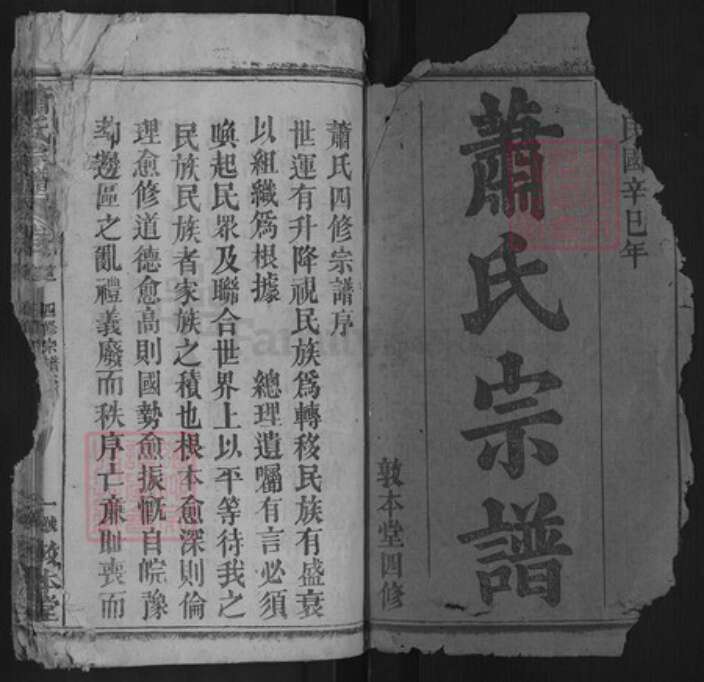 民國辛巳年
蕭氏宗譜
敦本堂四修
蕭氏四修宗譜序
世運有升降視民族為轉移民族有盛衰
以組織為根據　總理遺囑有言必須
喚起民眾及聯合世界上以平等待我之
民族民族者家族之積也根本愈深則倫
理愈修道德愈高則國勢愈振慨自皖豫
鄂邊區之亂禮義廢而秩序亡廉恥喪而